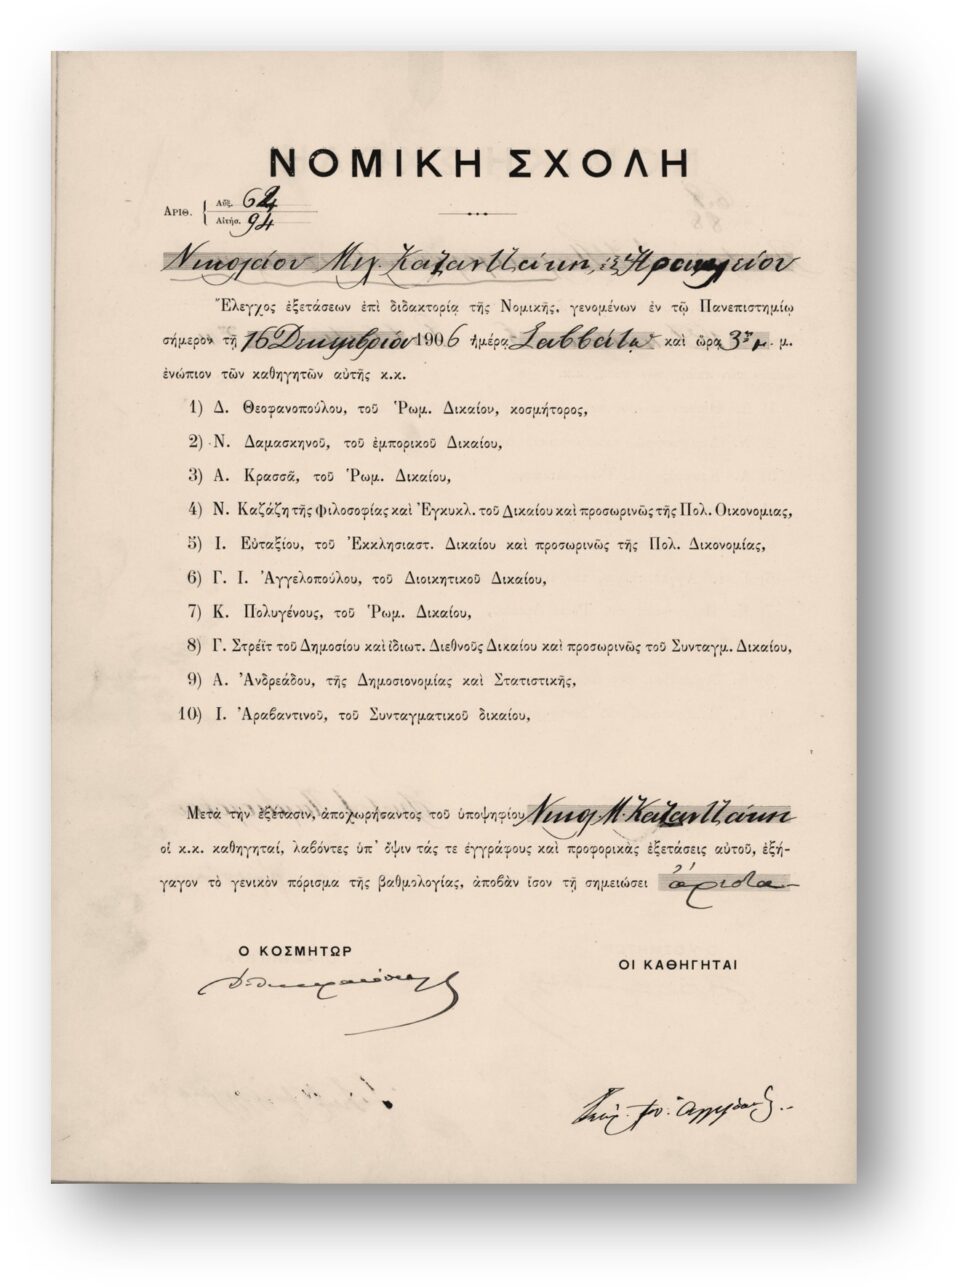 ΝΟΜΙΚΗ ΣΧΟΛΗ
ΑΡΙΘ. { Αὔξ. 62
Αἰτήσ. 94
Νικολάου Μιχ. Καζαντζάκη ἐξ Ἡρακλείου
Ἔλεγχος ἐξετάσεων ἐπὶ διδακτορίᾳ τῆς Νομικῆς, γενομένων ἐν τῷ Πανεπιστημίῳ
σήμερον τῇ 16 Δεκεμβρίου 1906 ἡμέρᾳ Σαββάτῳ καὶ ὥρᾳ 3ην μ. μ.
ἐνώπιον τῶν καθηγητῶν αὐτῆς κ.κ.
1) Δ. Θεοφανοπούλου, τοῦ Ῥωμ. Δικαίου, κοσμήτορος,
2) Ν. Δαμασκηνοῦ, τοῦ ἐμπορικοῦ Δικαίου,
3) Α. Κρασσᾶ, τοῦ Ῥωμ. Δικαίου,
4) Ν. Καζάζη τῆς Φιλοσοφίας καὶ Ἐγκυκλ. τοῦ Δικαίου καὶ προσωρινῶς τῆς Πολ. Οικονομιας,
5) Ι. Εὐταξίου, τοῦ Ἐκκλησιαστ. Δικαίου καὶ προσωρινῶς τῆς Πολ. Δικονομίας,
6) Γ. Ι. Ἀγγελοπούλου, τοῦ Διοικητικοῦ Δικαίου,
7) Κ. Πολυγένους, τοῦ Ῥωμ. Δικαίου,
8) Γ. Στρέϊτ τοῦ Δημοσίου καὶ ἰδιωτ. Διεθνοῦς Δικαίου καὶ προσωρινῶς τοῦ Συνταγμ. Δικαίου,
9) Α. Ἀνδρεάδου, τῆς Δημοσιονομίας καὶ Στατιστικῆς,
10) Ι. Ἀραβαντινοῦ, τοῦ Συνταγματικοῦ δικαίου,
Μετὰ τὴν ἐξέτασιν, ἀποχωρήσαντος τοῦ ὑποψηφίου Νικολ. Μ. Καζαντζάκη
οἱ κ.κ. καθηγηταί, λαβόντες ὑπ' ὄψιν τάς τε ἐγγράφους καὶ προφορικὰς ἐξετάσεις αὐτοῦ, ἐξή-
γαγον τὸ γενικὸν πόρισμα τῆς βαθμολογίας, ἀποβὰν ἴσον τῇ σημειώσει ἄριστα
Ο ΚΟΣΜΗΤΩΡ
ΟΙ ΚΑΘΗΓΗΤΑΙ